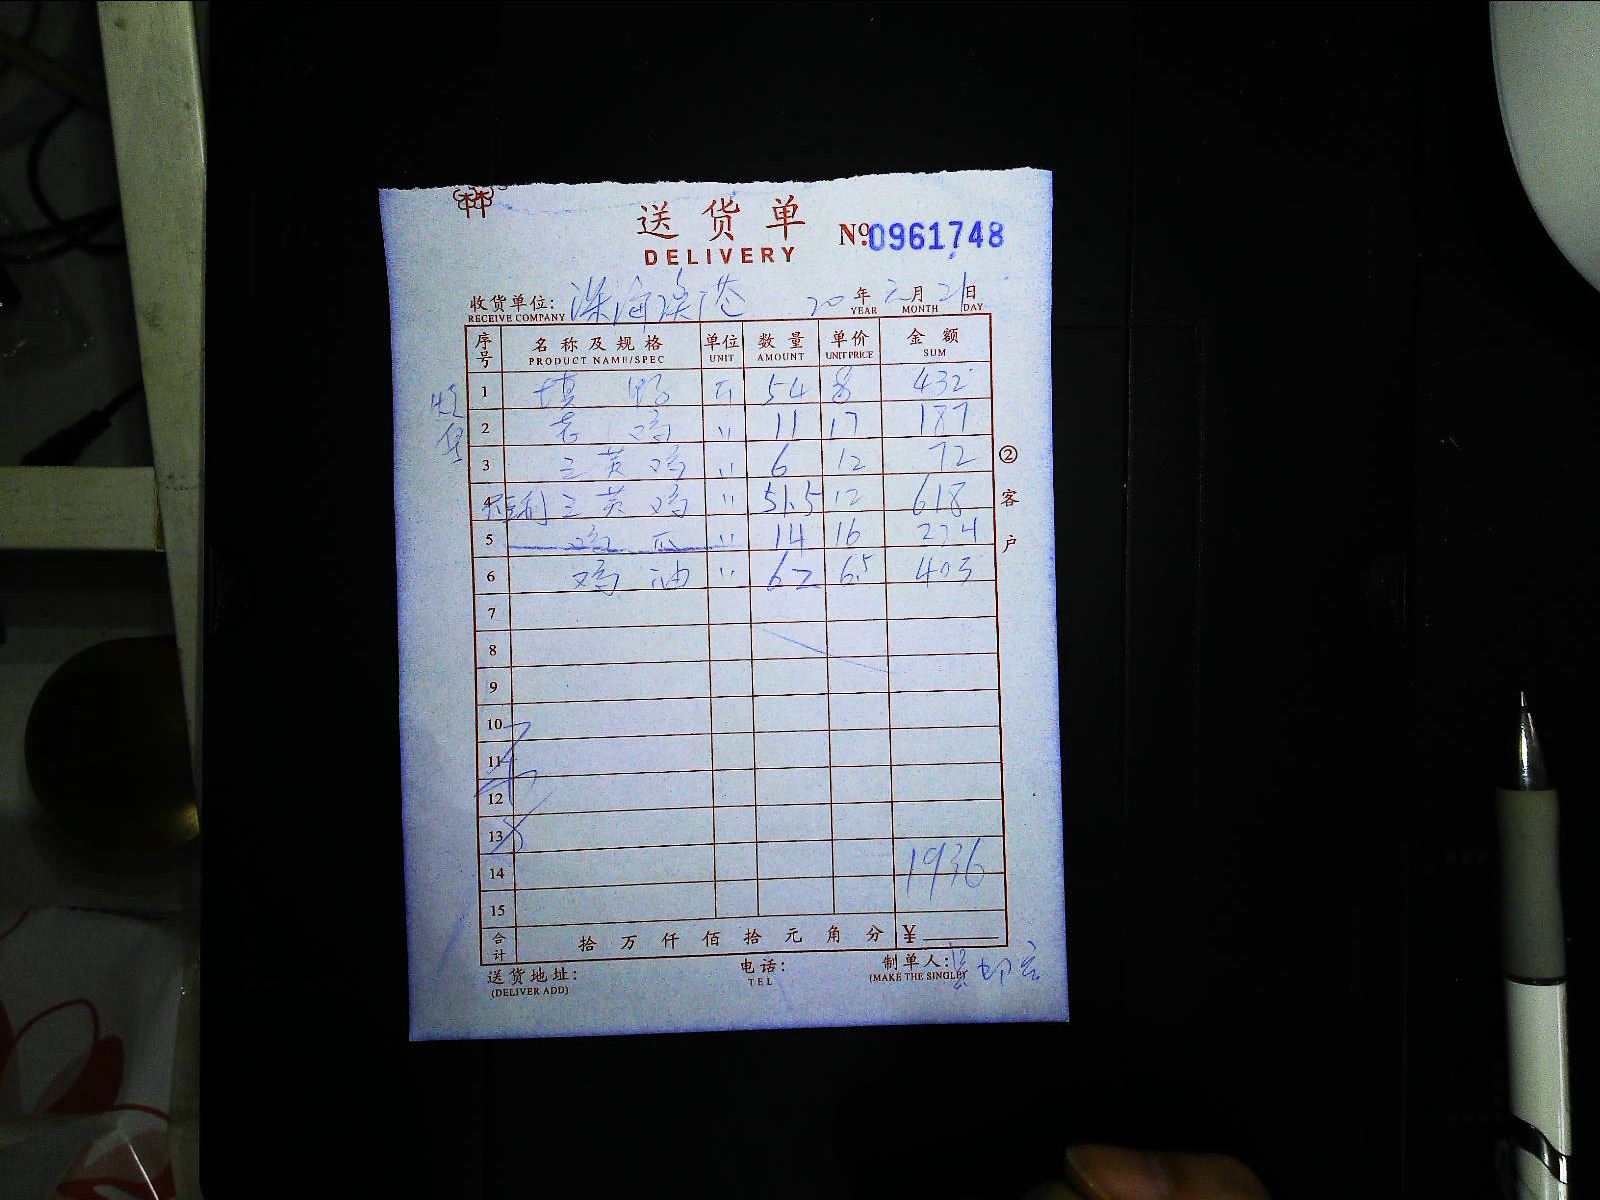 送货单
DELIVERY
№.0961748
收货单位: 深海渔港 20年 六月 21日
RECEIVE COMPANY YEAR MONTH DAY
序号 名称及规格 单位 数量 单价 金额
PRODUCT NAME/SPEC UNIT AMOUNT UNIT PRICE SUM
1 填鸭 斤 54 8 432
2 老鸡 〃 11 17 187
3 三黄鸡 〃 6 12 72
4 三黄鸡 〃 51.5 12 618
5 鸡 〃 14 16 224
6 鸡油 〃 62 6.5 403
7
8
9
10
11
12
13
14 1936
15
合计 拾 万 仟 佰 拾 元 角 分 ¥
送货地址: 电话: 制单人:
(DELIVER ADD) TEL (MAKE THE SINGLE)
② 客户